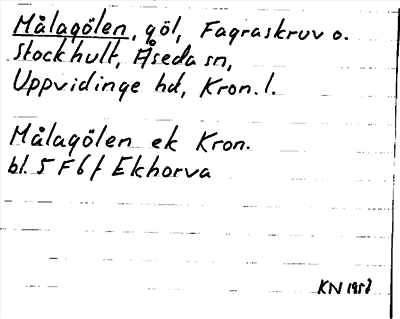 Målagölen, göl, Fagraskruv o.
Stockhult, Åseda sn,
Uppvidinge hd, Kron. l.
Målagölen ek Kron.
bl. 5 F 6 f Ekhorva
KN